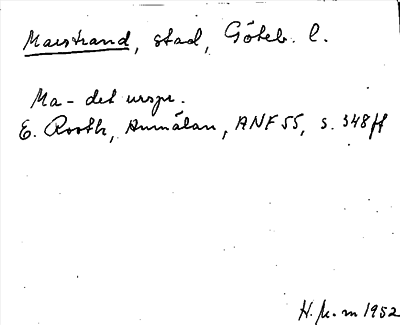 Marstrand, stad, Göteb. l.
Ma- det urspr.
E. Rooth, Anmälan, ANF 55, s. 348ff
H. 1952